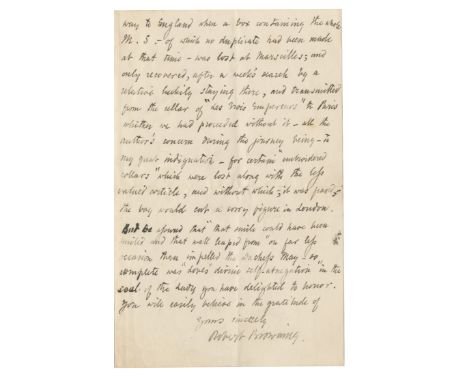 way to England when a box containing the whole
M.S. – of which no duplicate had been made
at that time – was lost at Marseilles; and
only recovered, after a week's search by a
relative luckily staying there, and transmitted
from the cellar of "Les Trois Empereurs" to Paris
whither we had proceeded without it – all the
author's concern during the journey being – to
my great indignation – for certain "embroidered
collars" which were lost along with the less
valued article, and without which, it was feared
the boy would cut a sorry figure in London.
But be assured that "that smile could have been
smiled and that wall leaped from" on far less
occasion than impelled the Duchess May – so
complete was "Love's divine self-abnegation" in the
soul of the Lady you have delighted to honor.
You will easily believe in the gratitude of
Yours sincerely
Robert Browning.